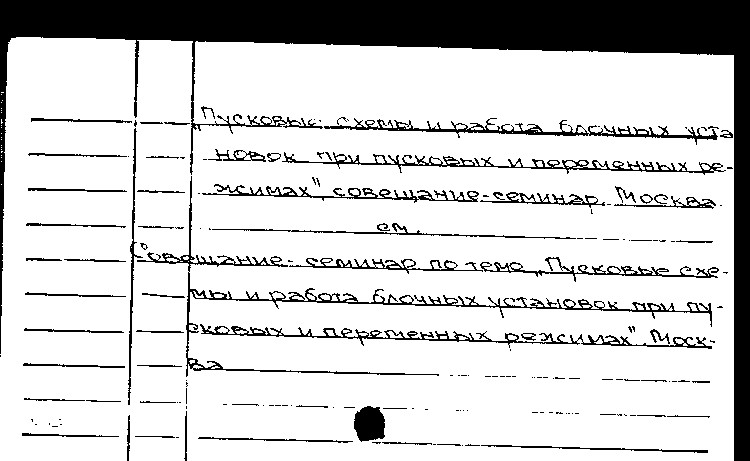 „Пусковые схемы и работа блочных уста
новок при пусковых и переменных ре-
жимах", совещание-семинар. Москва.
см.
Совещание-семинар по теме „Пусковые схе-
мы и работа блочных установок при пу-
сковых и переменных режимах". Моск-
ва